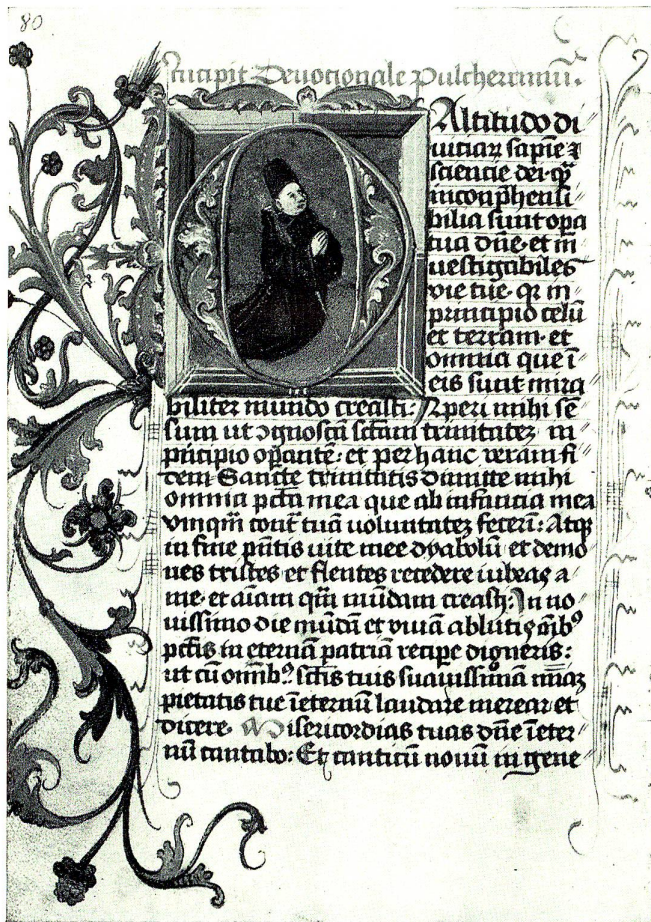 80
Incipit Deuotionale Pulcherrimū.
O Altitudo di
uitiaꝝ sapīe ⁊
scientie dei· qᷓ
incōp̄hensi
bilia sunt opa
tua dn̄e· et in
uestigabiles
vie tue· qꝛ in
principio celū
et terram· et
omnia que ī
eis sunt mira
biliter mundo creasti: Aperi mihi sē
sum ut ꝯgnoscā sc̄tam trinitatez in
pn̄cipio opantē: et pez hanc veram fi
dem Sancte trinitatis dimitte mihi
omnia pct̄a mea que ab infantia mea
vnqm̄ cont̄ tuā uoluntatez fecerī: Atqꝫ
in fine pn̄tis uite mee dyabolū et demo
nes tristes et flentes recedere iubeas a
me· et aīam qm̄ mūdam creasti: In no
uissimo die mūdā et viuā ablutis oībꝰ
pct̄is in eternā patriā recipe digneris:
ut cū omībꝰ sct̄is tuis suauissimā
pietatis tue īeternū laudare merear et
dicere· Misericordias tuas dn̄e īeter
nū cantabo: Et canticū nouū in gene